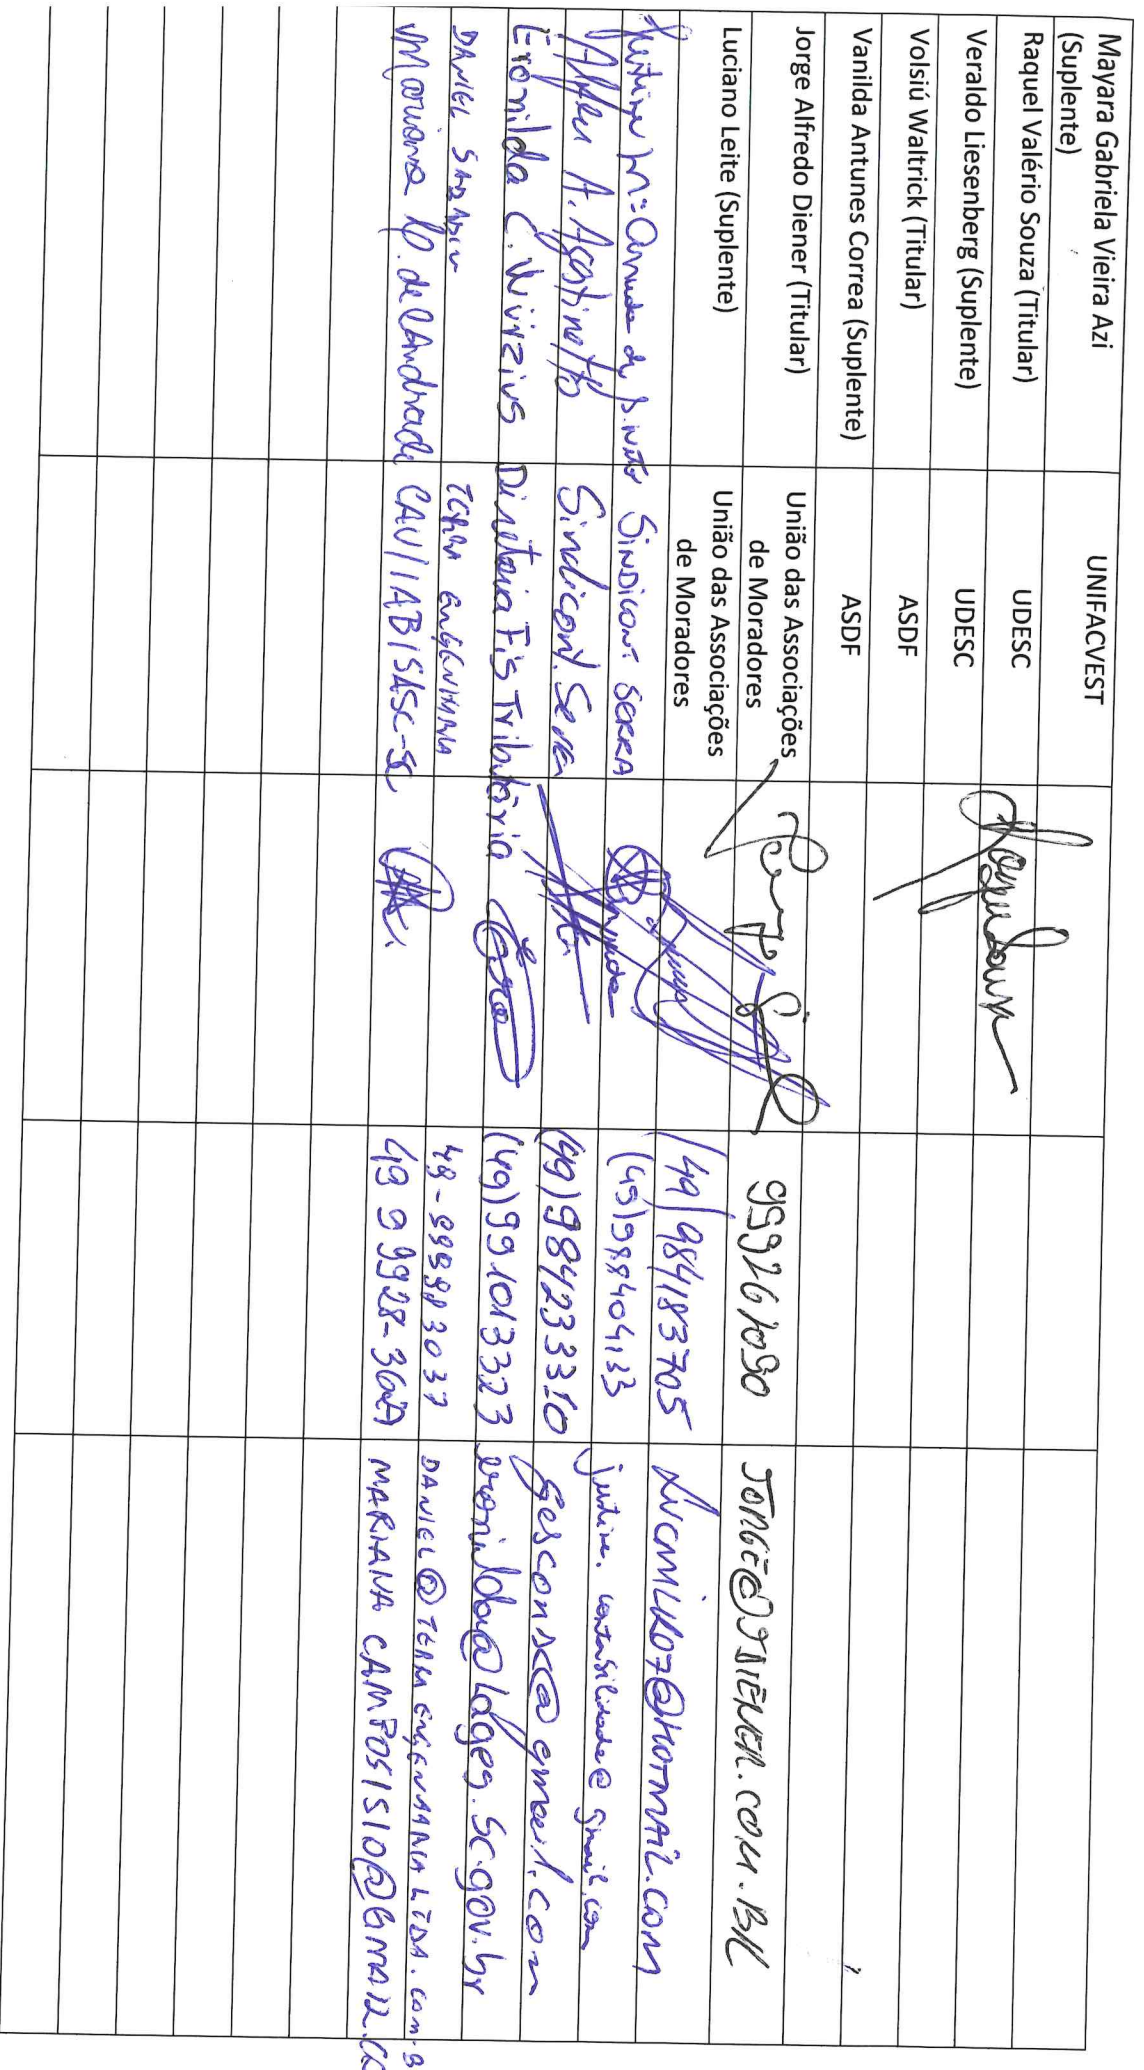 Mayara Gabriela Vieira Azi (Suplente) UNIFACVEST
Raquel Valério Souza (Titular) UDESC
Veraldo Liesenberg (Suplente) UDESC
Volsiú Waltrick (Titular) ASDF
Vanilda Antunes Correa (Suplente) ASDF
Jorge Alfredo Diener (Titular) União das Associações de Moradores 999261090 JORGE@JDIENER.COM.BR
Luciano Leite (Suplente) União das Associações de Moradores (49) 984183705 LUCMLR07@HOTMAIL.COM
SINDICONT SERRA (49) 988404133 justine.contabilidade@gmail.com
A. Agostinetto Sindicont. Serra (49) 984233310 gesconsc@gmail.com
Eronilda C. Wirzius Diretoria Fis Tributária (49) 991013323 eronilda@lages.sc.gov.br
DANIEL TERRA ENGENHARIA 49-999983037
Mariana de Andrade CAU/IAB/SASC-SC 49 99928- MARIANA CAMPOS1510@GMAIL.CO